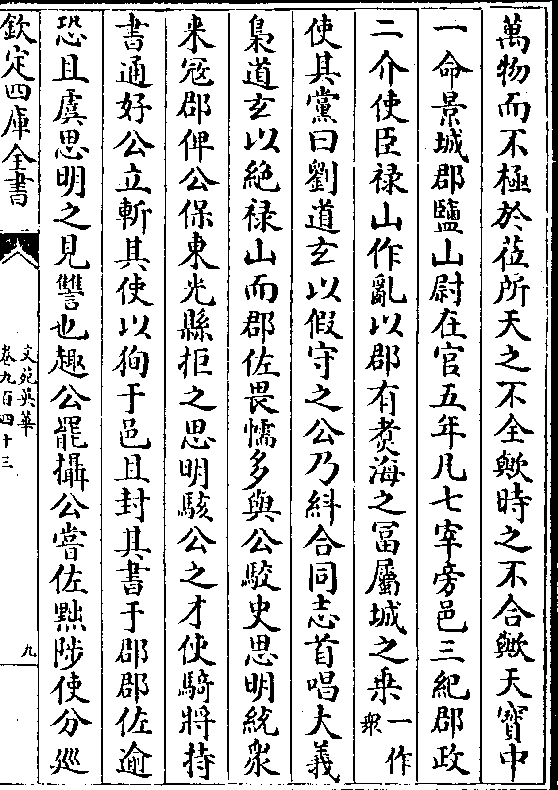 萬物而不極於莅所天之不全歟時之不合歟天寶中
一命景城郡鹽山尉在官五年凡七宰旁邑三紀郡政
二介使臣祿山作亂以郡有煑海之冨屬城之乗一作衆
使其黨曰劉道玄以假守之公乃糾合同志首唱大義
梟道玄以絶祿山而郡佐畏懦多與公駮史思明統衆
来冦郡俾公保東光縣拒之思明駭公之才使騎將持
書通好公立斬其使以狥于邑且封其書于郡郡佐逾
恐且虞思明之見讐也趣公罷攝公嘗佐黜陟使分廵
欽定四庫全書
文苑英華
卷九百四十三
九